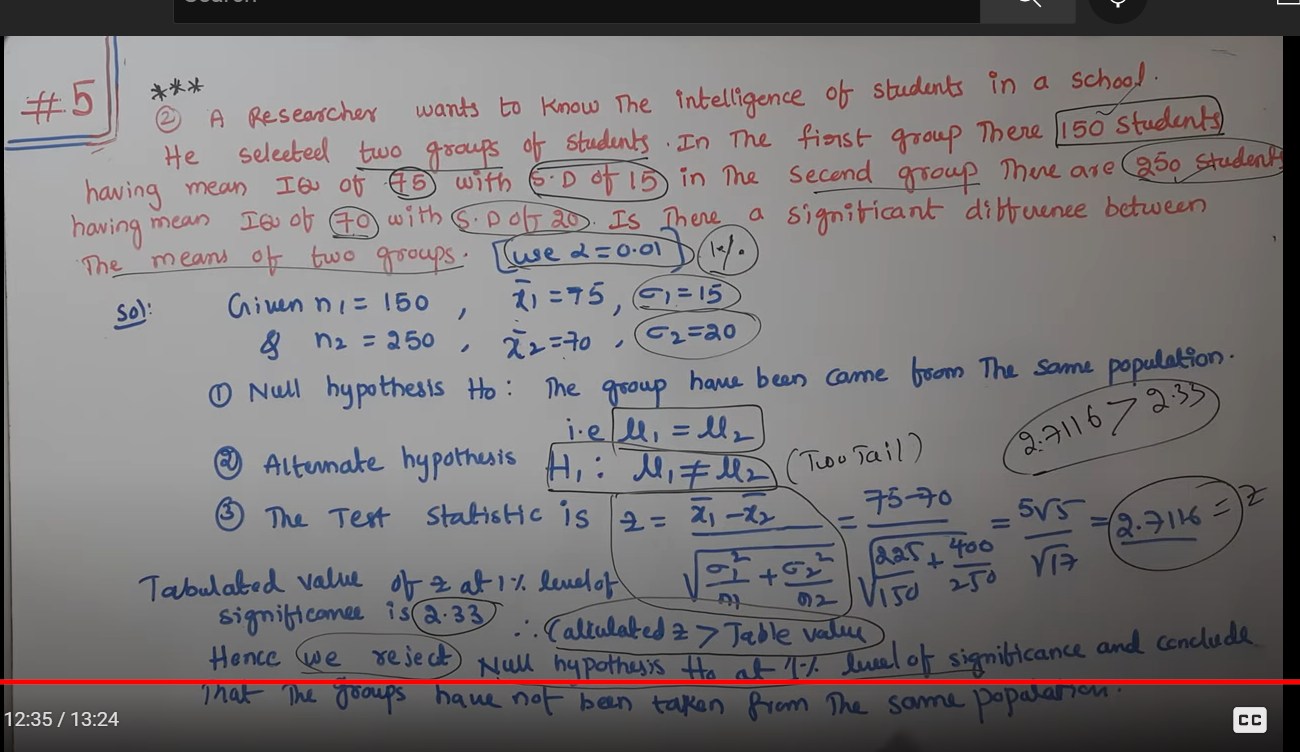 Search
#5
***
② A Researcher wants to know The intelligence of students in a school.
He selected two groups of students. In The first group There 150 students
having mean IQ of 75 with S.D of 15 in The second group There are 250 students
having mean IQ of 70 with S.D of 20. Is There a significant difference between
The means of two groups. [use α = 0.01] 1%
Sol: Given n1 = 150 , x̄1 = 75, σ1 = 15
& n2 = 250 , x̄2 = 70 , σ2 = 20
① Null hypothesis H0 : The group have been came from The same population.
i.e μ1 = μ2
2.7116 > 2.33
② Alternate hypothesis H1 : μ1 ≠ μ2 (Two Tail)
③ The Test Statistic is z = (x̄1 - x̄2) / √(σ1²/n1 + σ2²/n2) = (75-70) / √(225/150 + 400/250) = 5√5 / √17 = 2.7116 = z
Tabulated value of z at 1% level of
significance is 2.33 ∴ Calculated z > Table value
Hence we reject Null hypothesis H0 at 1% level of significance and conclude
That The groups have not been taken from The same population.
12:35 / 13:24
CC